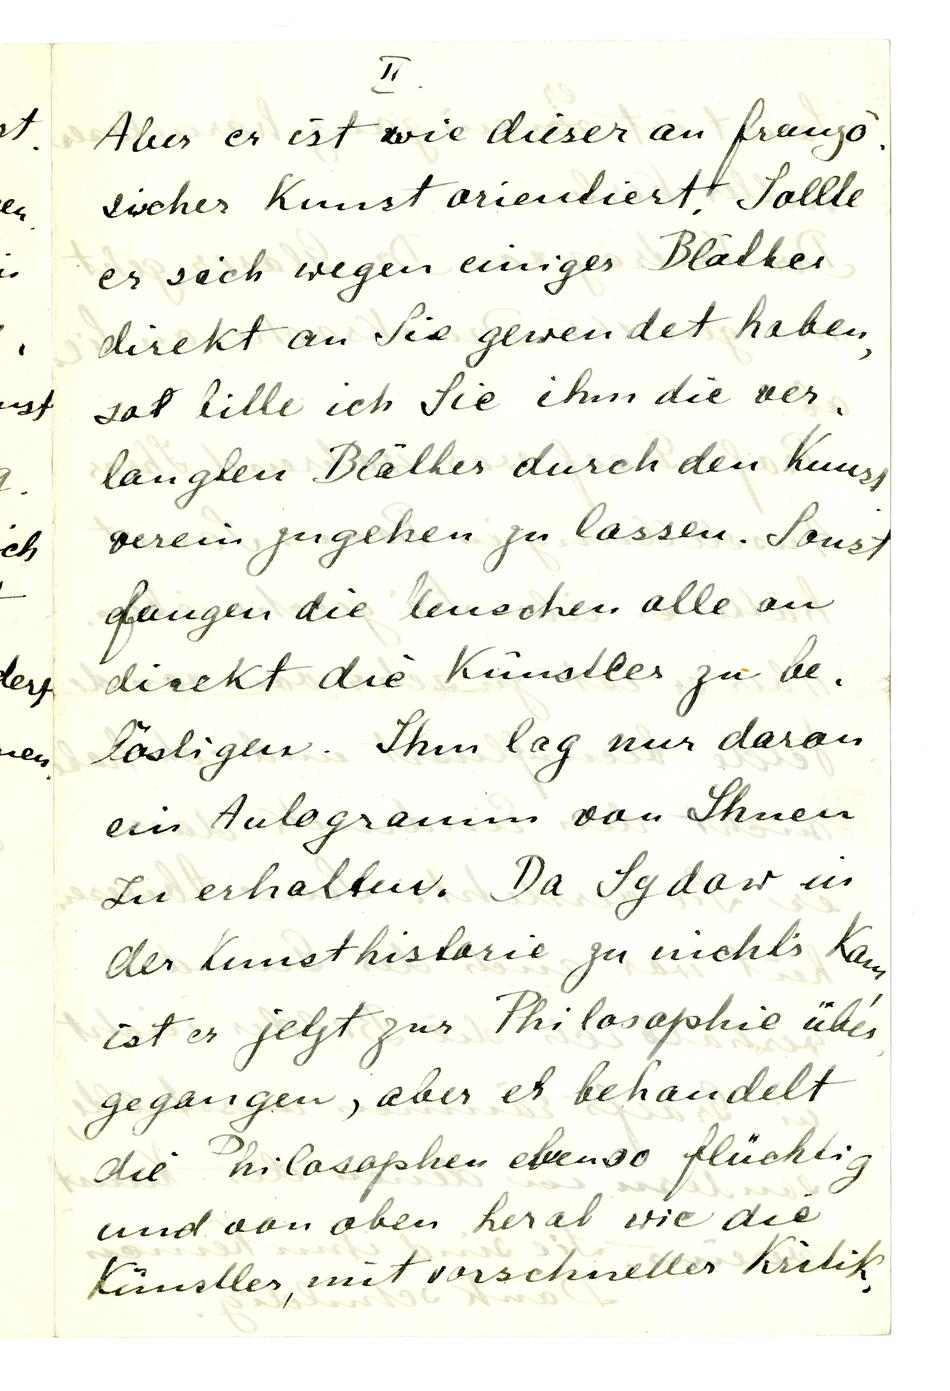 II.
Aber er ist wie dieser an franzö.
sischer Kunst orientiert! Sollte
er sich wegen einiger Blätter
direkt an Sie gewendet haben,
so bitte ich Sie ihm die ver.
langten Blätter durch den Kunst
verein zugehen zu lassen. Sonst
fangen die Menschen alle an
direkt die Künstler zu be.
lästigen. Ihm lag nur daran
ein Autogramm von Ihnen
zu erhalten. Da Sydow in
der Kunsthistorie zu nichts kam
ist er jetzt zur Philosophie über
gegangen, aber er behandelt
die Philosophen ebenso flüchtig
und von oben herab wie die
Künstler, mit vorschneller Kritik,